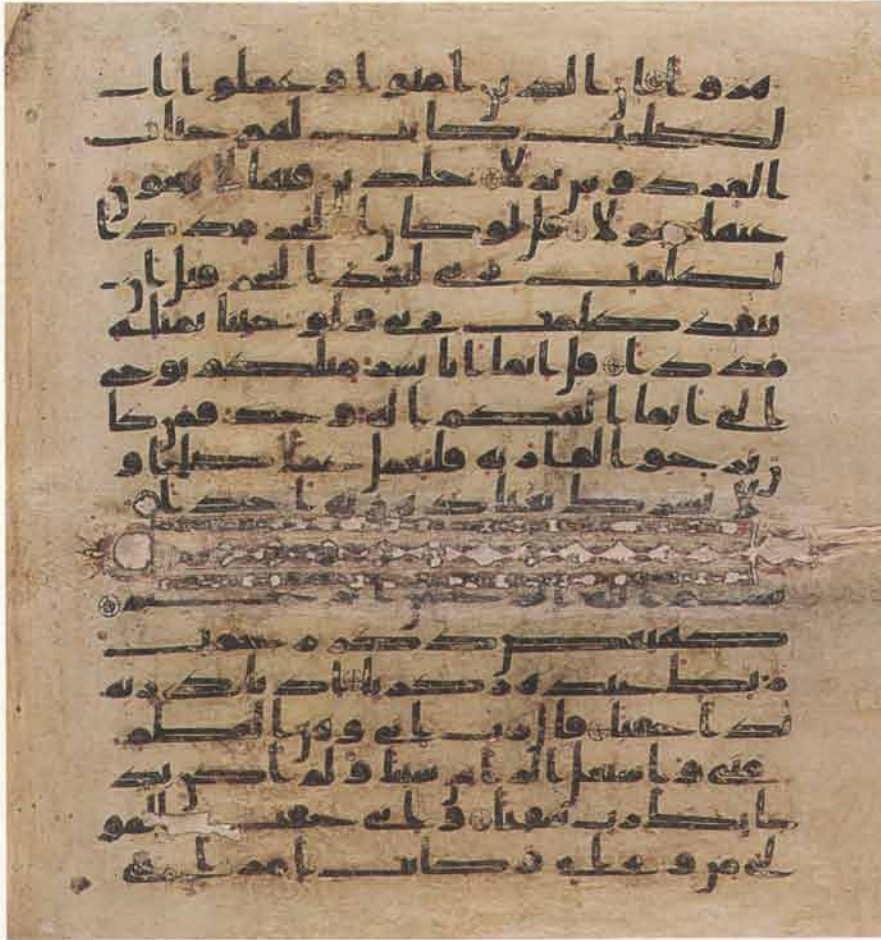 هزوا ان الذين امنوا و عملوا ا
لصلحت كانت لهم جنت
الفردوس نزلا خلدين فيها لا يبغون
عنها حولا قل لو كان البحر مددا
لكلمت ربى لنفد البحر قبل ان
تنفد كلمت ربى ولو جينا بمثله
مددا قل انما انا بشر مثلكم يوحى
الى انما الهكم اله وحد فمن كا
ن يرجوا لقا ربه فليعمل عملا صلحا و
لا يشرك بعبادة ربه احدا
بسم الله الرحمن الرحيم
كهيعص ذكر رحمت
ربك عبده زكريا اذ نادى ربه
ندا خفيا قال رب انى وهن العظم
منى و اشتعل الراس شيبا ولم اكن بد
عايك رب شقيا و انى خفت المو
لى من وراى و كانت امراتى